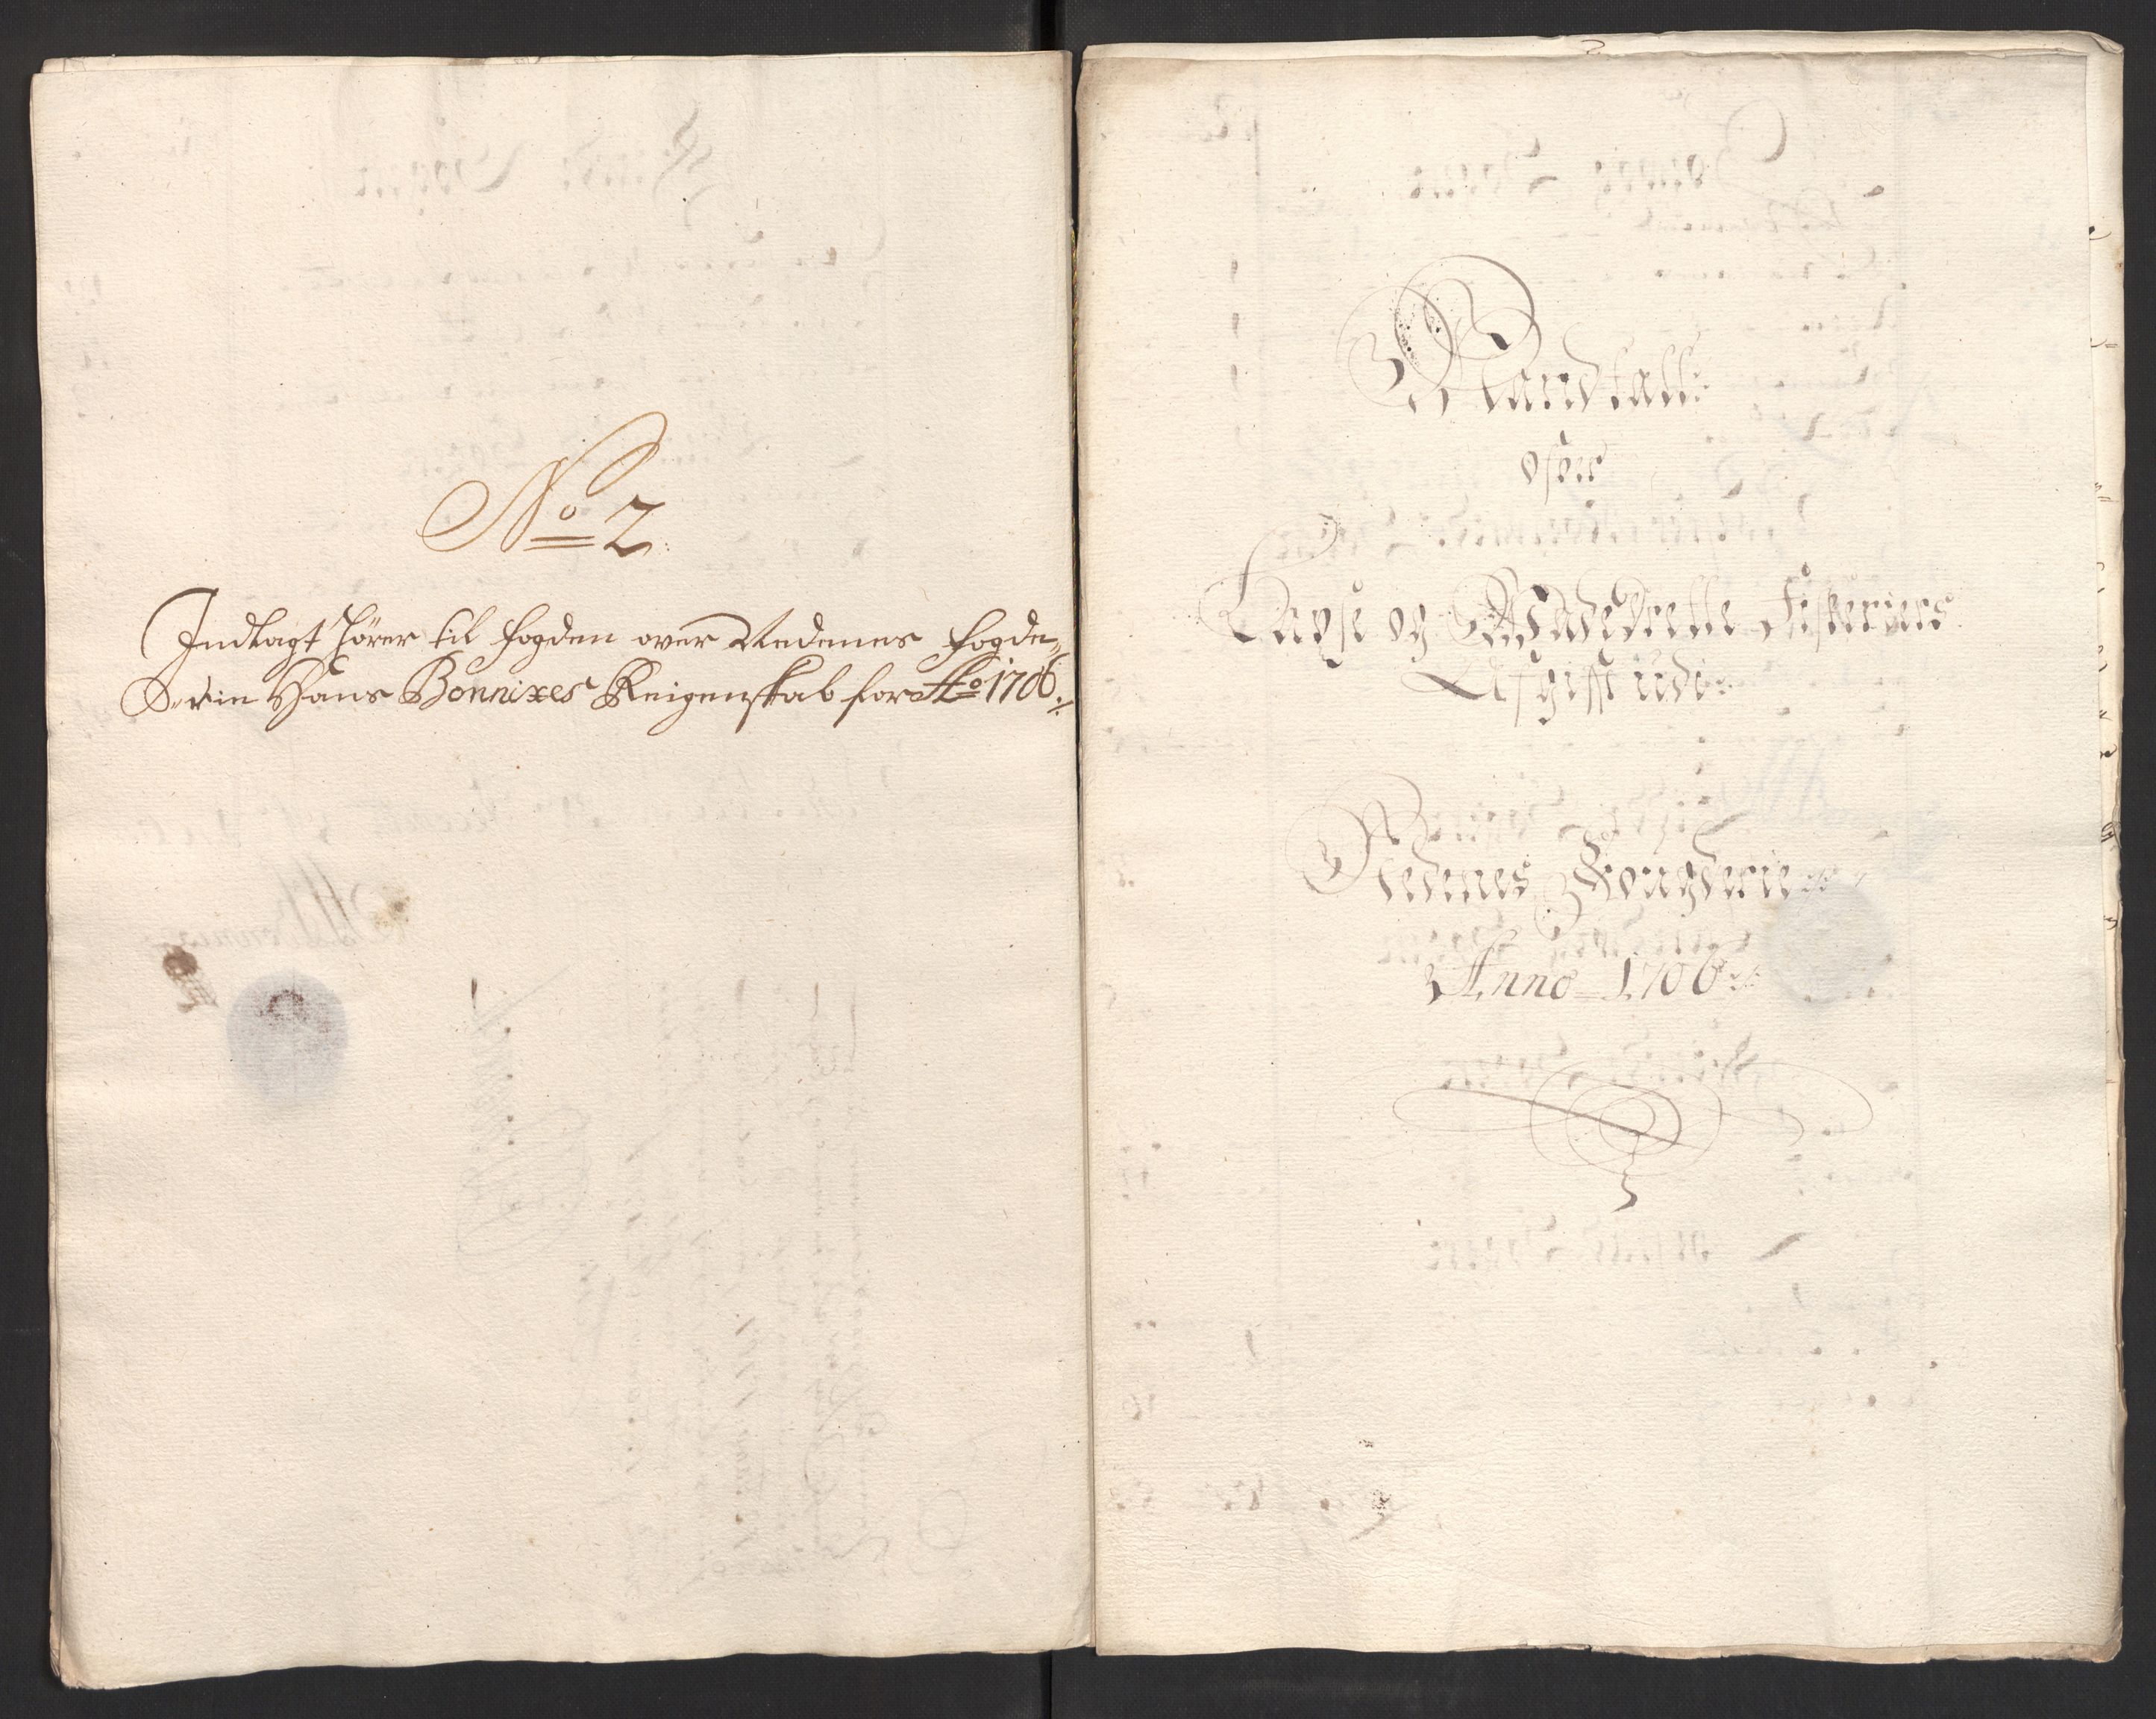 No 2
Indlagt hörer til fogden over Nedenes fogde-
Hans Bonnixes Reigenskab for Ao 1706.
Mandtall
ofver
Laxe og Fiskeriers
Afgifft udi
Nedenes Fougderie
Anno 1706